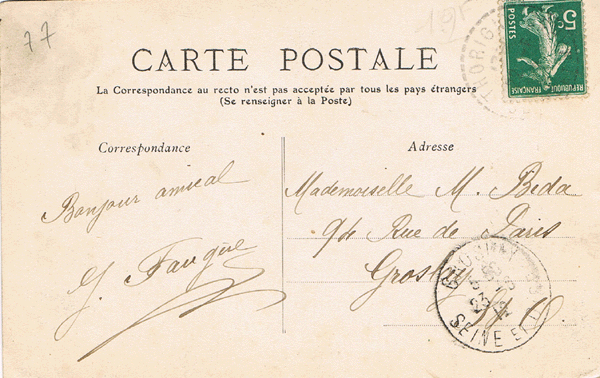 77
CARTE POSTALE
La Correspondance au recto n'est pas acceptée par tous les pays étrangers
(Se renseigner à la Poste)
5c
POSTES
REPUBLIQUE FRANÇAISE
Correspondance
Bonjour amical
Adresse
Mademoiselle M. Beda
94 Rue de Paris
Groslay
S. & O.
SEINE ET